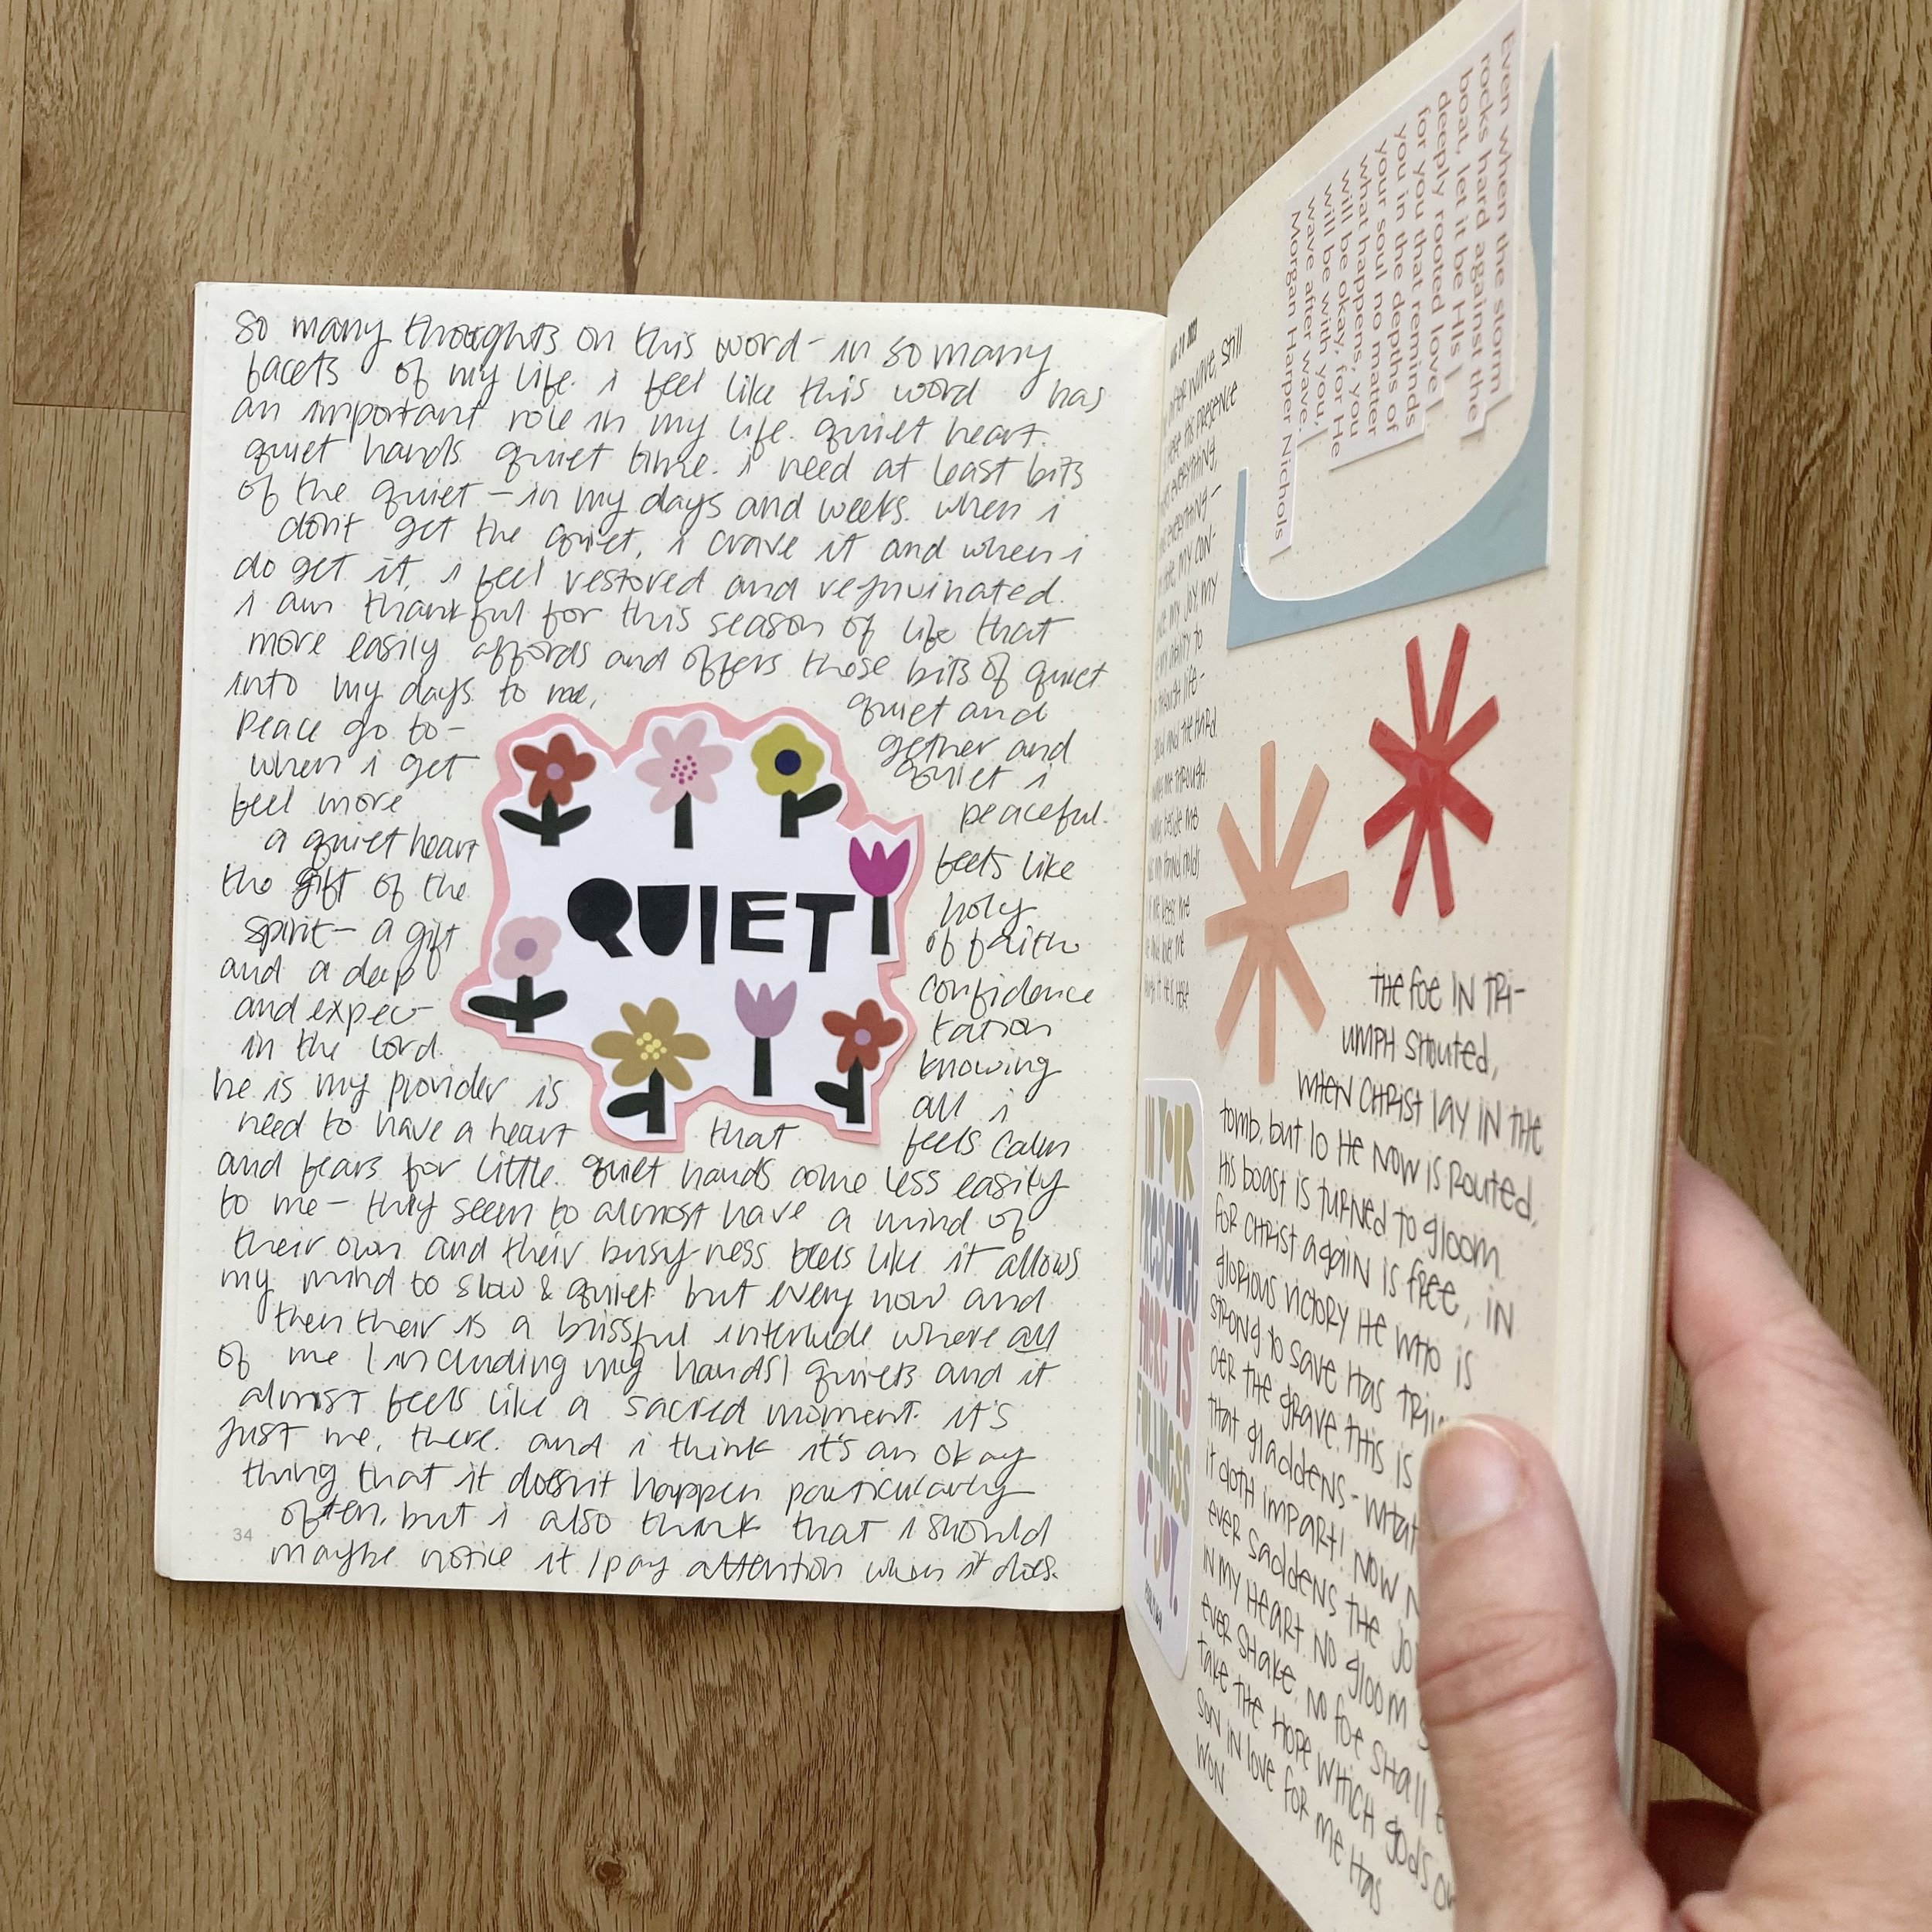 so many thoughts on this word - in so many
facets of my life. i feel like this word has
an important role in my life. quiet heart.
quiet hands. quiet time. i need at least bits
of the quiet - in my days and weeks. when i
don't get the quiet, i crave it and when i
do get it, i feel restored and rejuvinated.
i am thankful for this season of life that
more easily affords and offers those bits of quiet
into my days to me, quiet and
peace go to- gether and
when i get quiet i
feel more peaceful.
a quiet heart feels like
the gift of the holy
spirit - a gift of faith
and a deep confidence
and expec- tation
in the lord. knowing
he is my provider is all i
need to have a heart that feels calm
and fears for little. quiet hands come less easily
to me - they seem to almost have a mind of
their own and their busyness feels like it allows
my mind to slow & quiet. but every now and
then their is a blissful interlude where all
of me (including my hands) quiets and it
almost feels like a sacred moment. it's
just me, there. and i think it's an okay
thing that it doesn't happen particularly
often, but i also think that i should
maybe notice it/pay attention when it does.
QUIET
34
Even when the storm
rocks hard against the
boat, let it be HIs
deeply rooted love
for you that reminds
you in the depths of
your soul no matter
what happens, you
will be okay, for He
will be with you,
wave after wave.
Morgan Harper Nichols
2021
wave, still
his presence
everything,
everything -
my con-
my joy, my
my ability to
through life -
and the hard.
me through.
beside me
my hand, holds
keeps me
THE foe IN TRI-
UMPH SHouted,
WHEN CHRist lAy IN tHE
tomb, but lo HE NOW is Routed,
His boast is tuRNed to gloom
FoR CHRist agAiN is fRee, iN
gloRious victoRy HE WHo is
stRoNg to save Has
oER tHE gRave. tHis is
tHat gladdeNs - wHat
it dotH iMPaRt! NOW
eveR saddeNs tHE
iN my HEARt. No gloom
eveR sHake, No foe sHall
take tHE HoPe WHicH god's
soN iN love foR me Has
WoN.
IN YOUR
PRESENCE
THERE IS
FULLNESS
OF JOY.